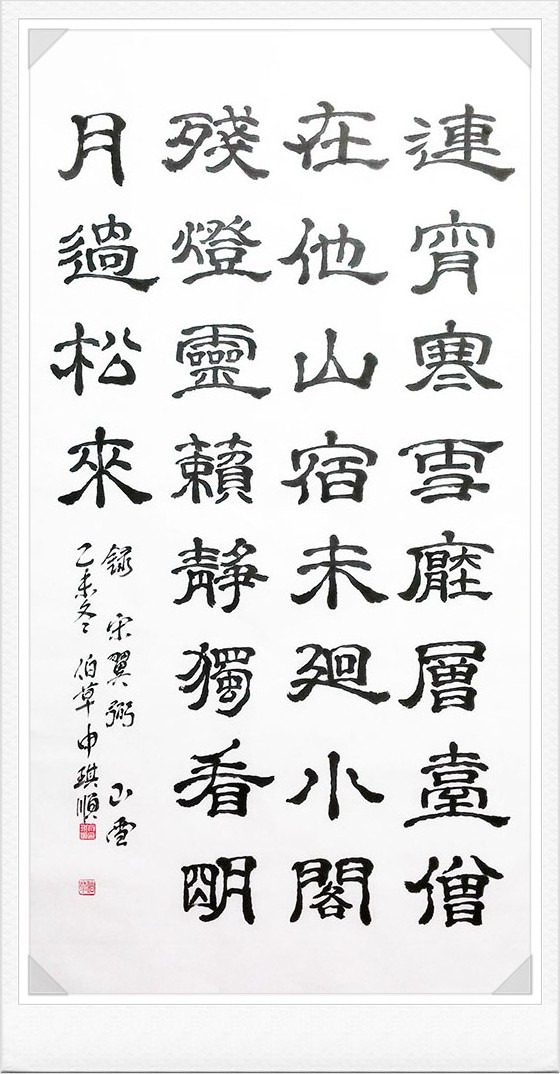 連宵寒雪壓層臺僧
在他山宿未廻小閣
殘燈靈籟靜獨看明
月過松來
錄 宋翼弼 山雪
乙未冬 伯草申琪順